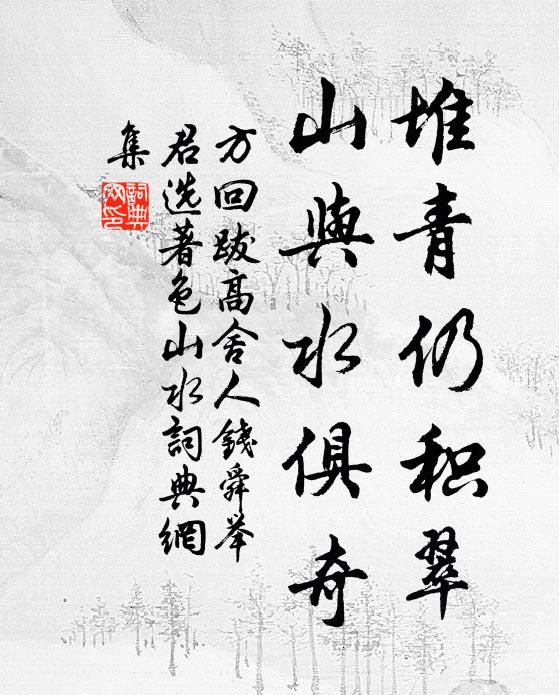 堆青仍积翠
山與水俱奇
方回跋高舍人錢舜举
君选著色山水詞典網
集
詞典網印